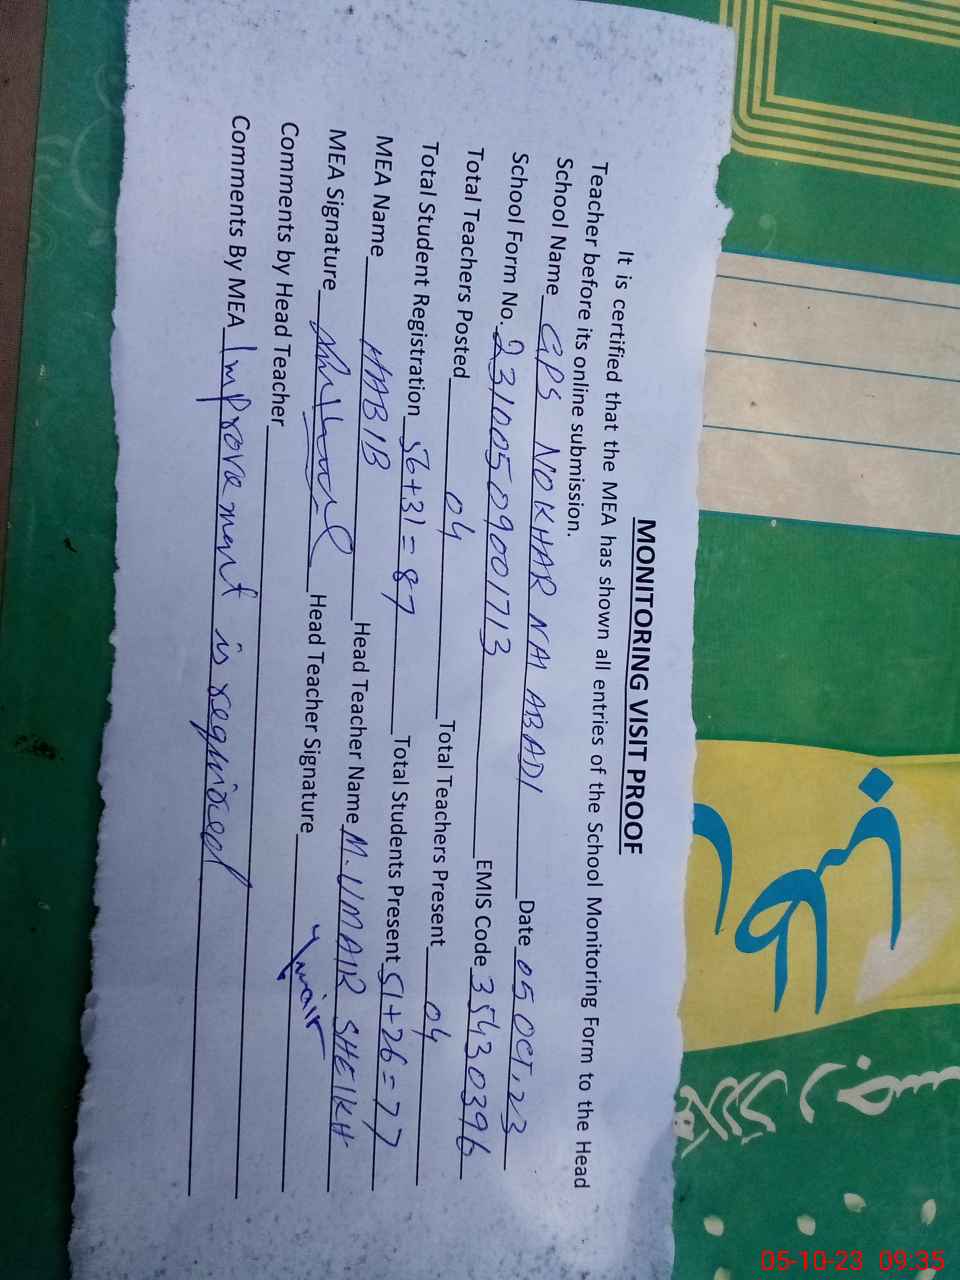 MONITORING VISIT PROOF
It is certified that the MEA has shown all entries of the School Monitoring Form to the Head
Teacher before its online submission.
School Name GPS NOKHAR NAI ABADI Date 05 OCT, 23
School Form No. 23100509001713 EMIS Code 35430396
Total Teachers Posted 04 Total Teachers Present 04
Total Student Registration 56+31=87 Total Students Present 51+26=77
MEA Name HABIB Head Teacher Name M. UMAIR SHEIKH
MEA Signature Head Teacher Signature Umair
Comments by Head Teacher
Comments By MEA Improvement is required
05-10-23 09:35